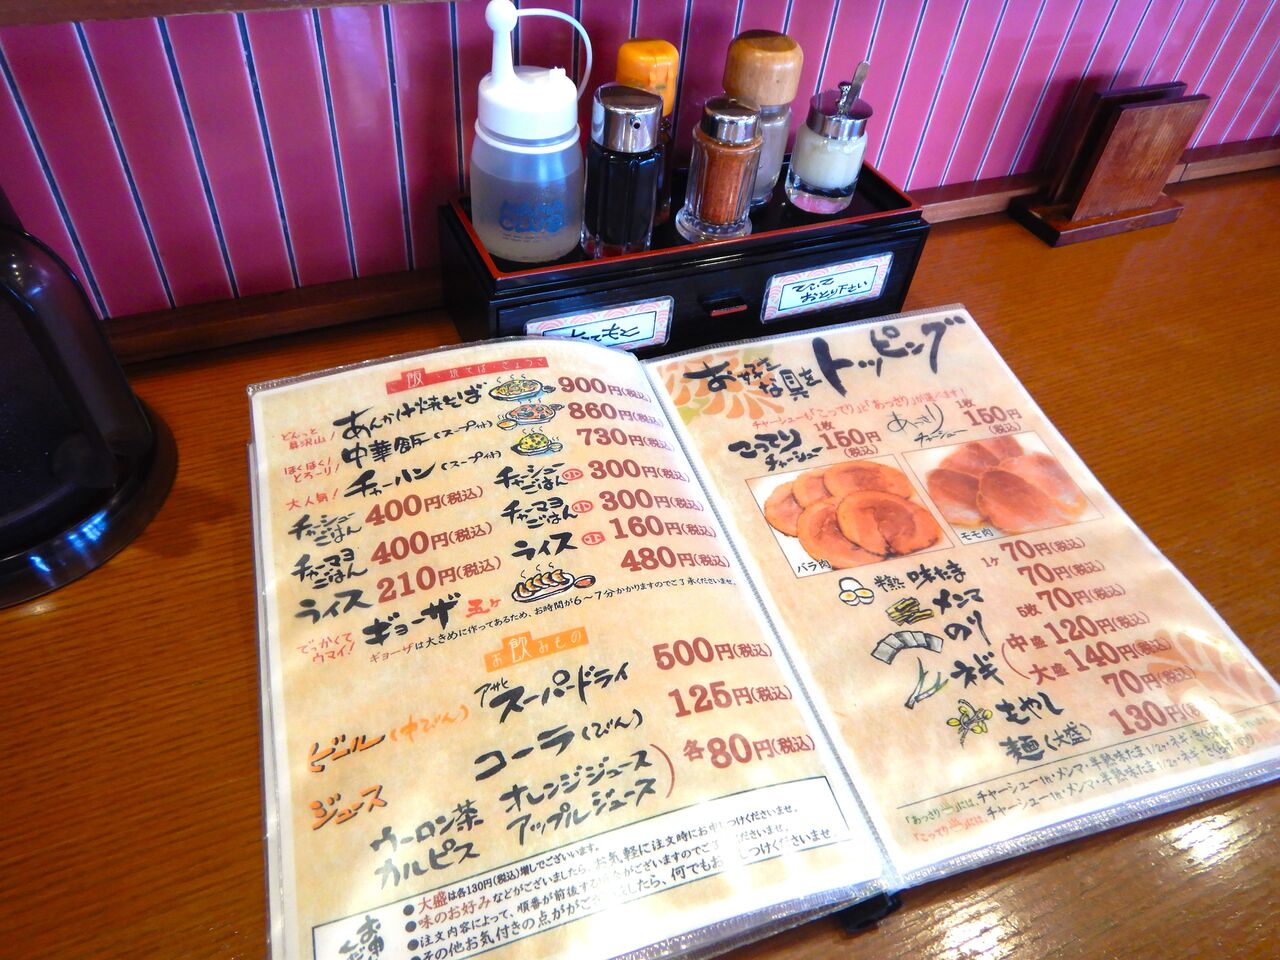 とてもと
てていて
おとり下さい
ご飯・焼そば・ぎょうざ
どんっと具沢山！ あんかけ焼そば 900円(税込)
ほくほく！とろ〜り！ 中華飯(スープ付) 860円(税込)
大人気！ チャーハン(スープ付) 730円(税込)
チャーシューごはん 400円(税込) チャーシューごはん 小 300円(税込)
チャーマヨごはん 400円(税込) チャーマヨごはん 小 300円(税込)
ライス 210円(税込) ライス 小 160円(税込)
でっかくてウマイ！ ギョーザ 五ヶ 480円(税込)
ギョーザは大きめに作ってあるため、お時間が6〜7分かかりますのでご了承くださいませ。
お飲みもの
ビール(中びん) アサヒ スーパードライ 500円(税込)
ジュース コーラ(びん) 125円(税込)
ウーロン茶 オレンジジュース 各80円(税込)
カルピス アップルジュース
●大盛は各130円(税込)増しでございます。
●味のお好みなどがございましたら、お気軽に注文時にお申しつけくださいませ。
●注文内容によって、順番が前後する場合がございますのでご了承くださいませ。
●その他お気付きの点がございましたら、何でもお申しつけくださいませ。
お好きな具をトッピング
チャーシューも「こってり」と「あっさり」が選べます！
こってりチャーシュー 1枚 150円(税込)
あっさりチャーシュー 1枚 150円(税込)
バラ肉
モモ肉
半熟味たま 1ケ 70円(税込)
メンマ 70円(税込)
のり 5枚 70円(税込)
ネギ 中盛 120円(税込)
大盛 140円(税込)
もやし 70円(税込)
麺(大盛) 130円(税込)
「あっさり当」には、チャーシュー1枚・メンマ・半熟味たま1/2ケ・ネギ・きくらげ・のり
「こってり当」には、チャーシュー1枚・メンマ・半熟味たま1/2ケ・ネギ・きくらげ・のり